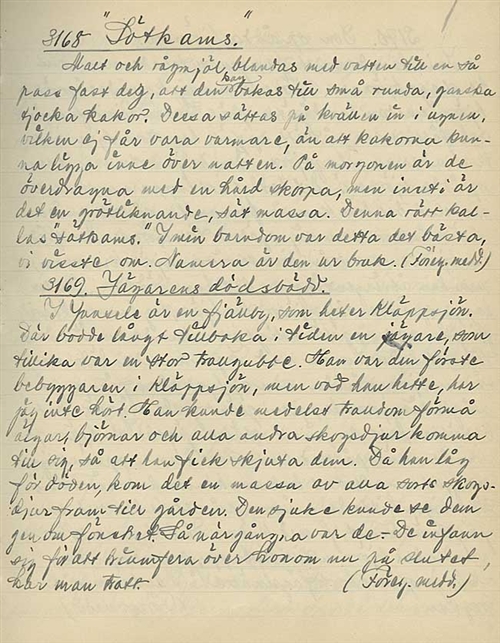 3168 "Sötkams."
Malt och rågmjöl blandas med vatten till en så
pass fast deg, att den kan bakas till små runda, ganska
tjocka kakor. Dessa sättas på kvällen in i ugnen,
vilken ej får vara varmare, än att kakorna kun-
na ligga inne över natten. På morgonen är de
överdragna med en hård skorpa, men inuti är
det en grötliknande, söt massa. Denna rätt kal-
las "sötkams." I min barndom var detta det bästa,
vi visste om. Numera är den ur bruk. (Föreg. medd.)
3169. Jägarens dödsbädd.
I Junsele är en fjällby, som heter Kläppsjön.
Där bodde långt tillbaka i tiden en jägare, som
tillika var en stor trollgubbe. Han var den förste
bebyggaren i Kläppsjön, men vad han hette, har
jag inte hört. Han kunde medelst trolldom förmå
älgar, björnar och alla andra skogsdjur komma
till sig, så att han fick skjuta dem. Då han låg
för döden, kom det en massa av alla sorts skogs-
djur fram till gården. Den sjuke kunde se dem
genom fönstret. Så närgångna var de. De infann
sig för att triumfera över honom nu på slutet,
har man trott. (Föreg. medd.)